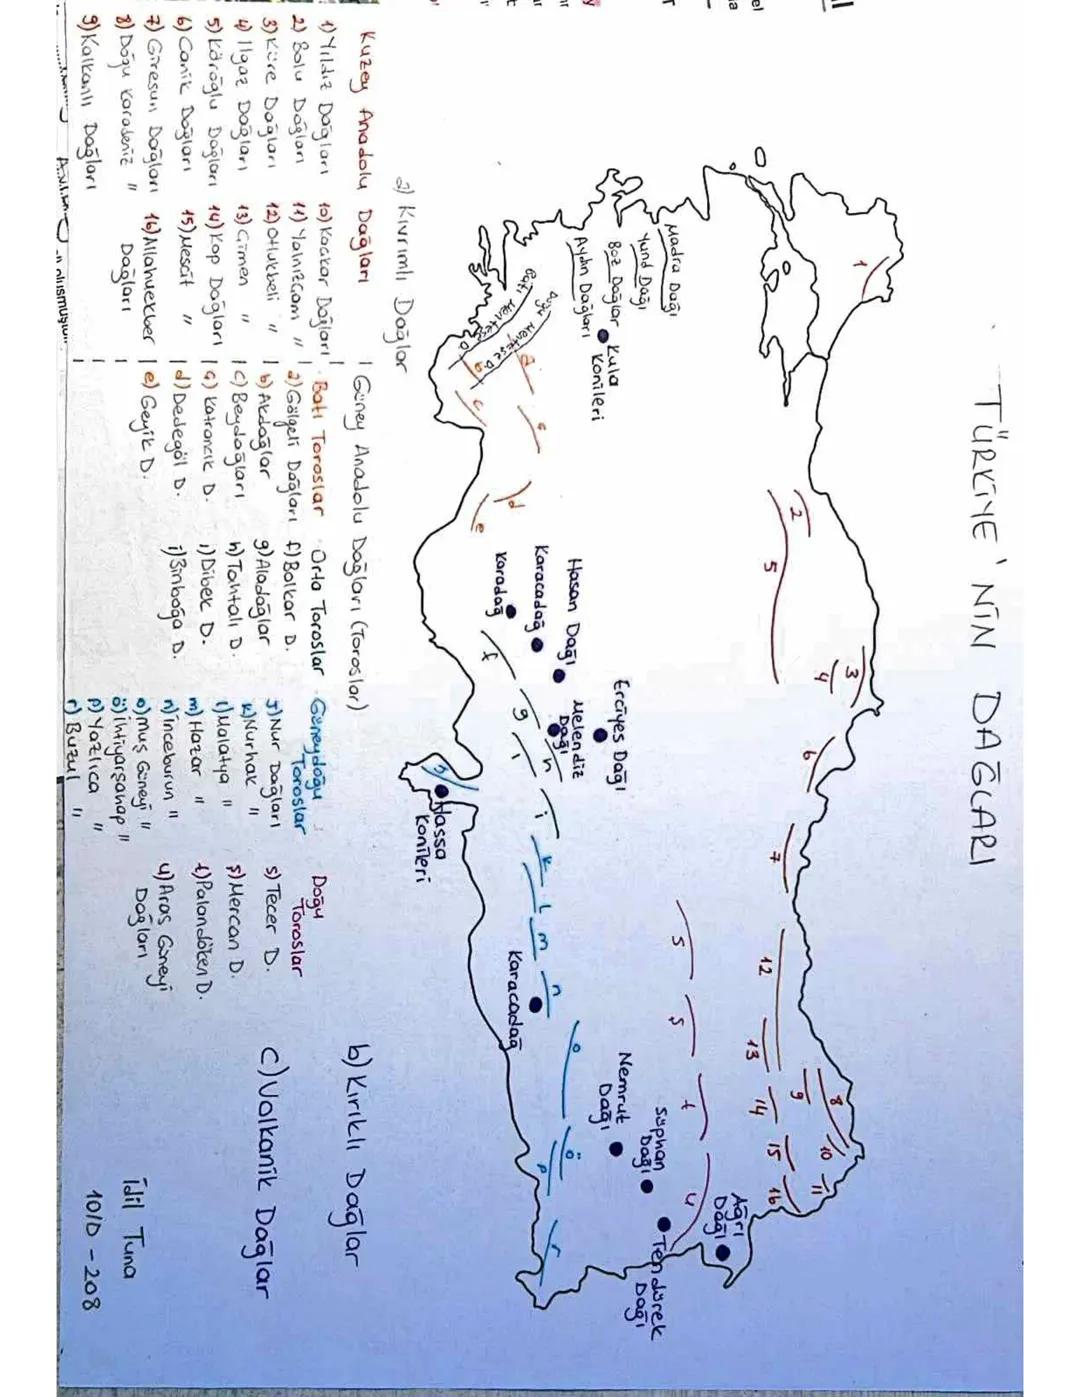 TÜRKİYE'NİN DAĞLARI
1
2
5
3
4
6
7
12
13
8
9
14
10
15
11
16
Madra Dağı
Yund Dağı
Boz Dağlar
Kula
Konileri
Aydın Dağları
Batı Menteşe D.
Doğu Menteşe D.
a
b
c
d
e
Hasan Dağı
Karacadağ
Karadağ
Erciyes Dağı
Melendiz
Dağı
f
g
h
ı
i
Hassa
Konileri
k
l
m
n
Karacadağ
s
ş
t
u
o
ö
p
r
Nemrut
Dağı
Süphan
Dağı
Ağrı
Dağı
Tendürek
Dağı
a) Kıvrımlı Dağlar
Kuzey Anadolu Dağları
1) Yıldız Dağları
2) Bolu Dağları
3) Küre Dağları
4) Ilgaz Dağları
5) Köroğlu Dağları
6) Canik Dağları
7) Giresun Dağları
8) Doğu Karadeniz "
9) Kalkanlı Dağları
10) Kackar Dağları
11) Yalnızçam "
12) Otlukbeli "
13) Çimen "
14) Kop Dağları
15) Mescit "
16) Allahuekber
Dağları
Güney Anadolu Dağları (Toroslar)
Batı Toroslar
a) Gölgeli Dağları
b) Akdağlar
c) Beydağları
ç) Katrancık D.
d) Dedegöl D.
e) Geyik D.
Orta Toroslar
f) Bolkar D.
g) Aladağlar
h) Tahtalı D.
ı) Dibek D.
i) Binboğa D.
Güneydoğu
Toroslar
j) Nur Dağları
k) Nurhak "
l) Malatya "
m) Hazar "
n) İnceburun "
o) Muş Güneyi "
ö) İhtiyarşahap "
p) Yazlıca "
r) Buzul "
Doğu
Toroslar
s) Tecer D.
ş) Mercan D.
t) Palandöken D.
u) Aras Güneyi
Dağları
b) Kırıklı Dağlar
c) Volkanik Dağlar
İdil Tuna
10/D - 208